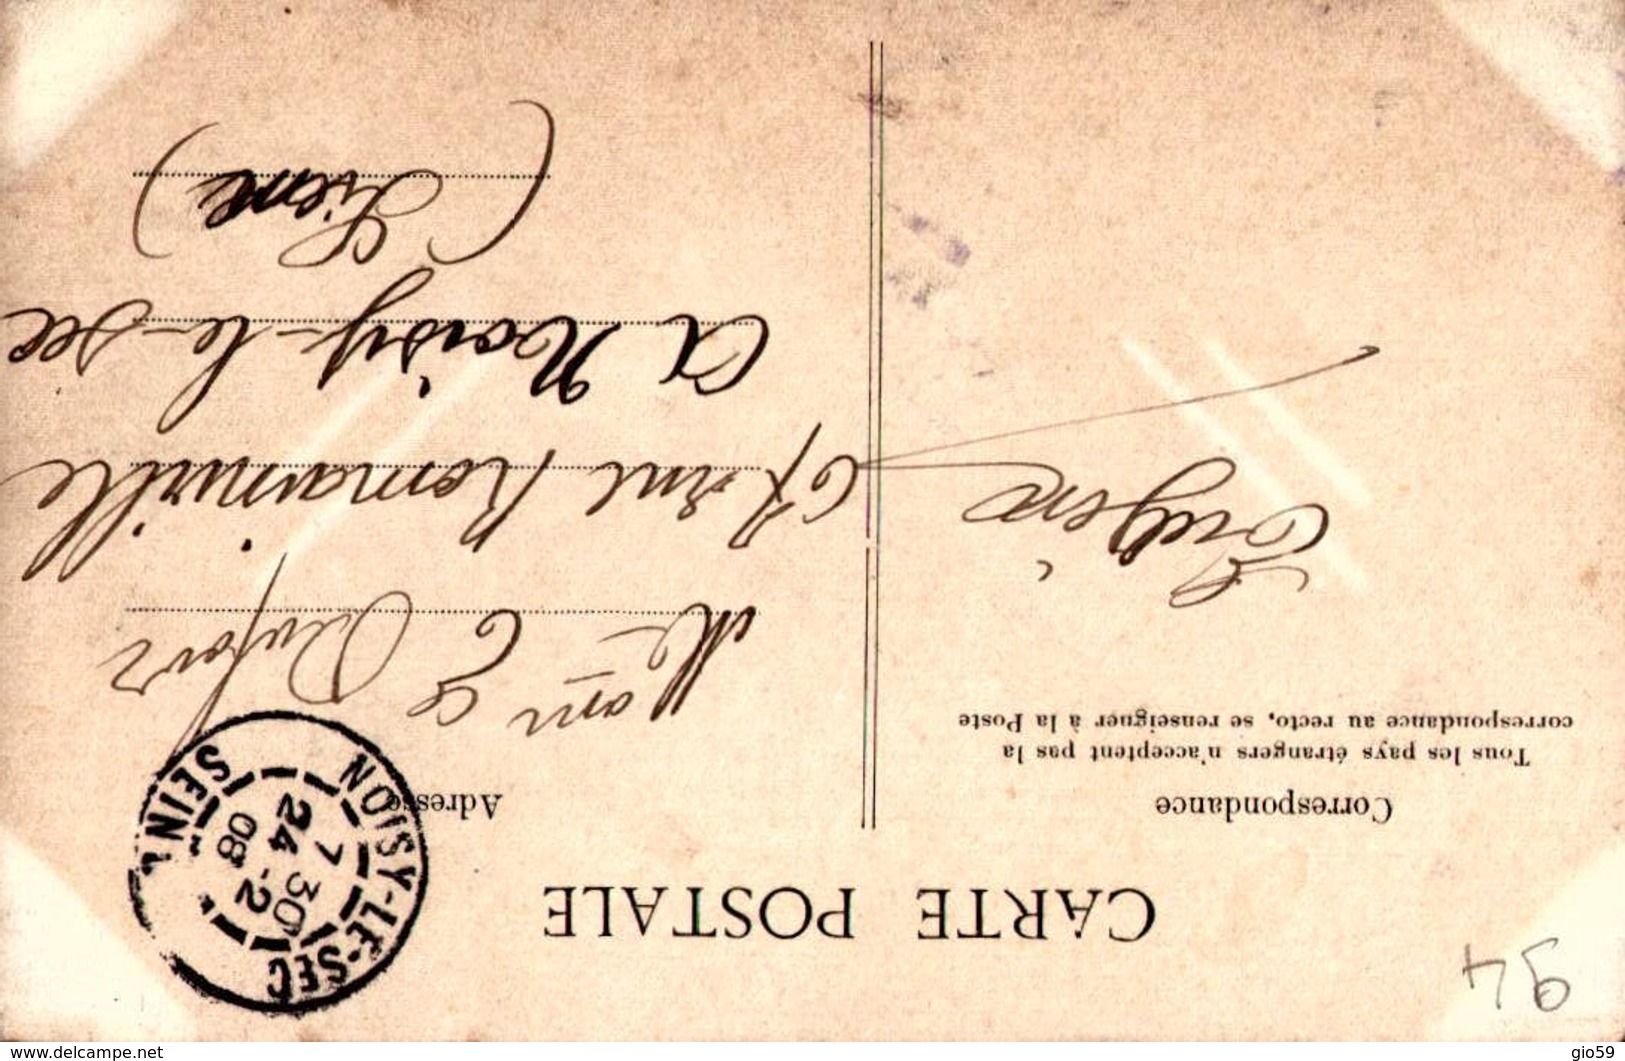 94
CARTE POSTALE
Correspondance
Tous les pays étrangers n'acceptent pas la
correspondance au recto, se renseigner à la Poste
Eugène
Adresse
NOISY-LE-SEC
SEINE
7 30
24 -2
08
E Dufour
rue Romainville
A Noisy-le-sec
(Seine)
www.delcampe.net
gio59